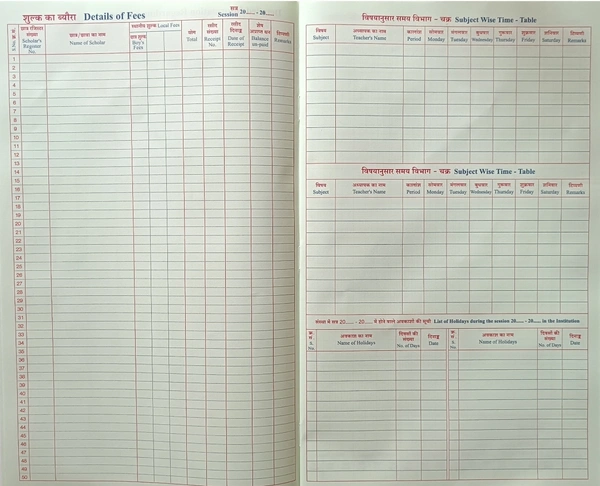 शुल्क का ब्यौरा Details of Fees
सत्र
Session 20...... - 20......
S.No. क्र.
छात्र रजिस्टर संख्या
Scholar's Register No.
छात्र/छात्रा का नाम
Name of Scholar
स्थानीय शुल्क Local Fees
छात्र शुल्क
Boy's Fees
योग
Total
रसीद संख्या
Receipt No.
रसीद दिनाङ्क
Date of Receipt
शेष
Balance un-paid
टिप्पणी
Remarks
1
2
3
4
5
6
7
8
9
10
11
12
13
14
15
16
17
18
19
20
21
22
23
24
25
26
27
28
29
30
31
32
33
34
35
36
37
38
39
40
41
42
43
44
45
46
47
48
49
50
विषयानुसार समय विभाग - चक्र Subject Wise Time - Table
विषय अध्यापक का नाम कालांश सोमवार मंगलवार बुधवार गुरूवार शुक्रवार शनिवार टिप्पणी
Subject Teacher's Name Period Monday Tuesday Wednesday Thursday Friday Saturday Remarks
विषयानुसार समय विभाग - चक्र Subject Wise Time - Table
विषय अध्यापक का नाम कालांश सोमवार मंगलवार बुधवार गुरूवार शुक्रवार शनिवार टिप्पणी
Subject Teacher's Name Period Monday Tuesday Wednesday Thursday Friday Saturday Remarks
संस्था में सत्र 20...... - 20...... में होने वाले अवकाशों की सूची List of Holidays during the session 20...... - 20...... in the Institution
क्र. सं.
S. No.
अवकाश का नाम
Name of Holidays
दिवसों की संख्या
No. of Days
दिनाङ्क
Date
क्र. सं.
S. No.
अवकाश का नाम
Name of Holidays
दिवसों की संख्या
No. of Days
दिनाङ्क
Date